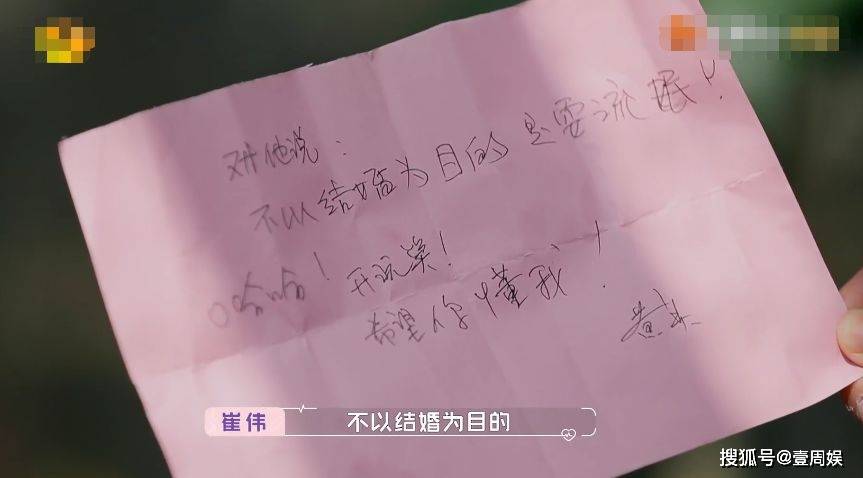 对他说：
不以结婚为目的是耍流氓！
哈哈！开玩笑！
希望你懂我！
崔伟 不以结婚为目的
搜狐号@壹周娱